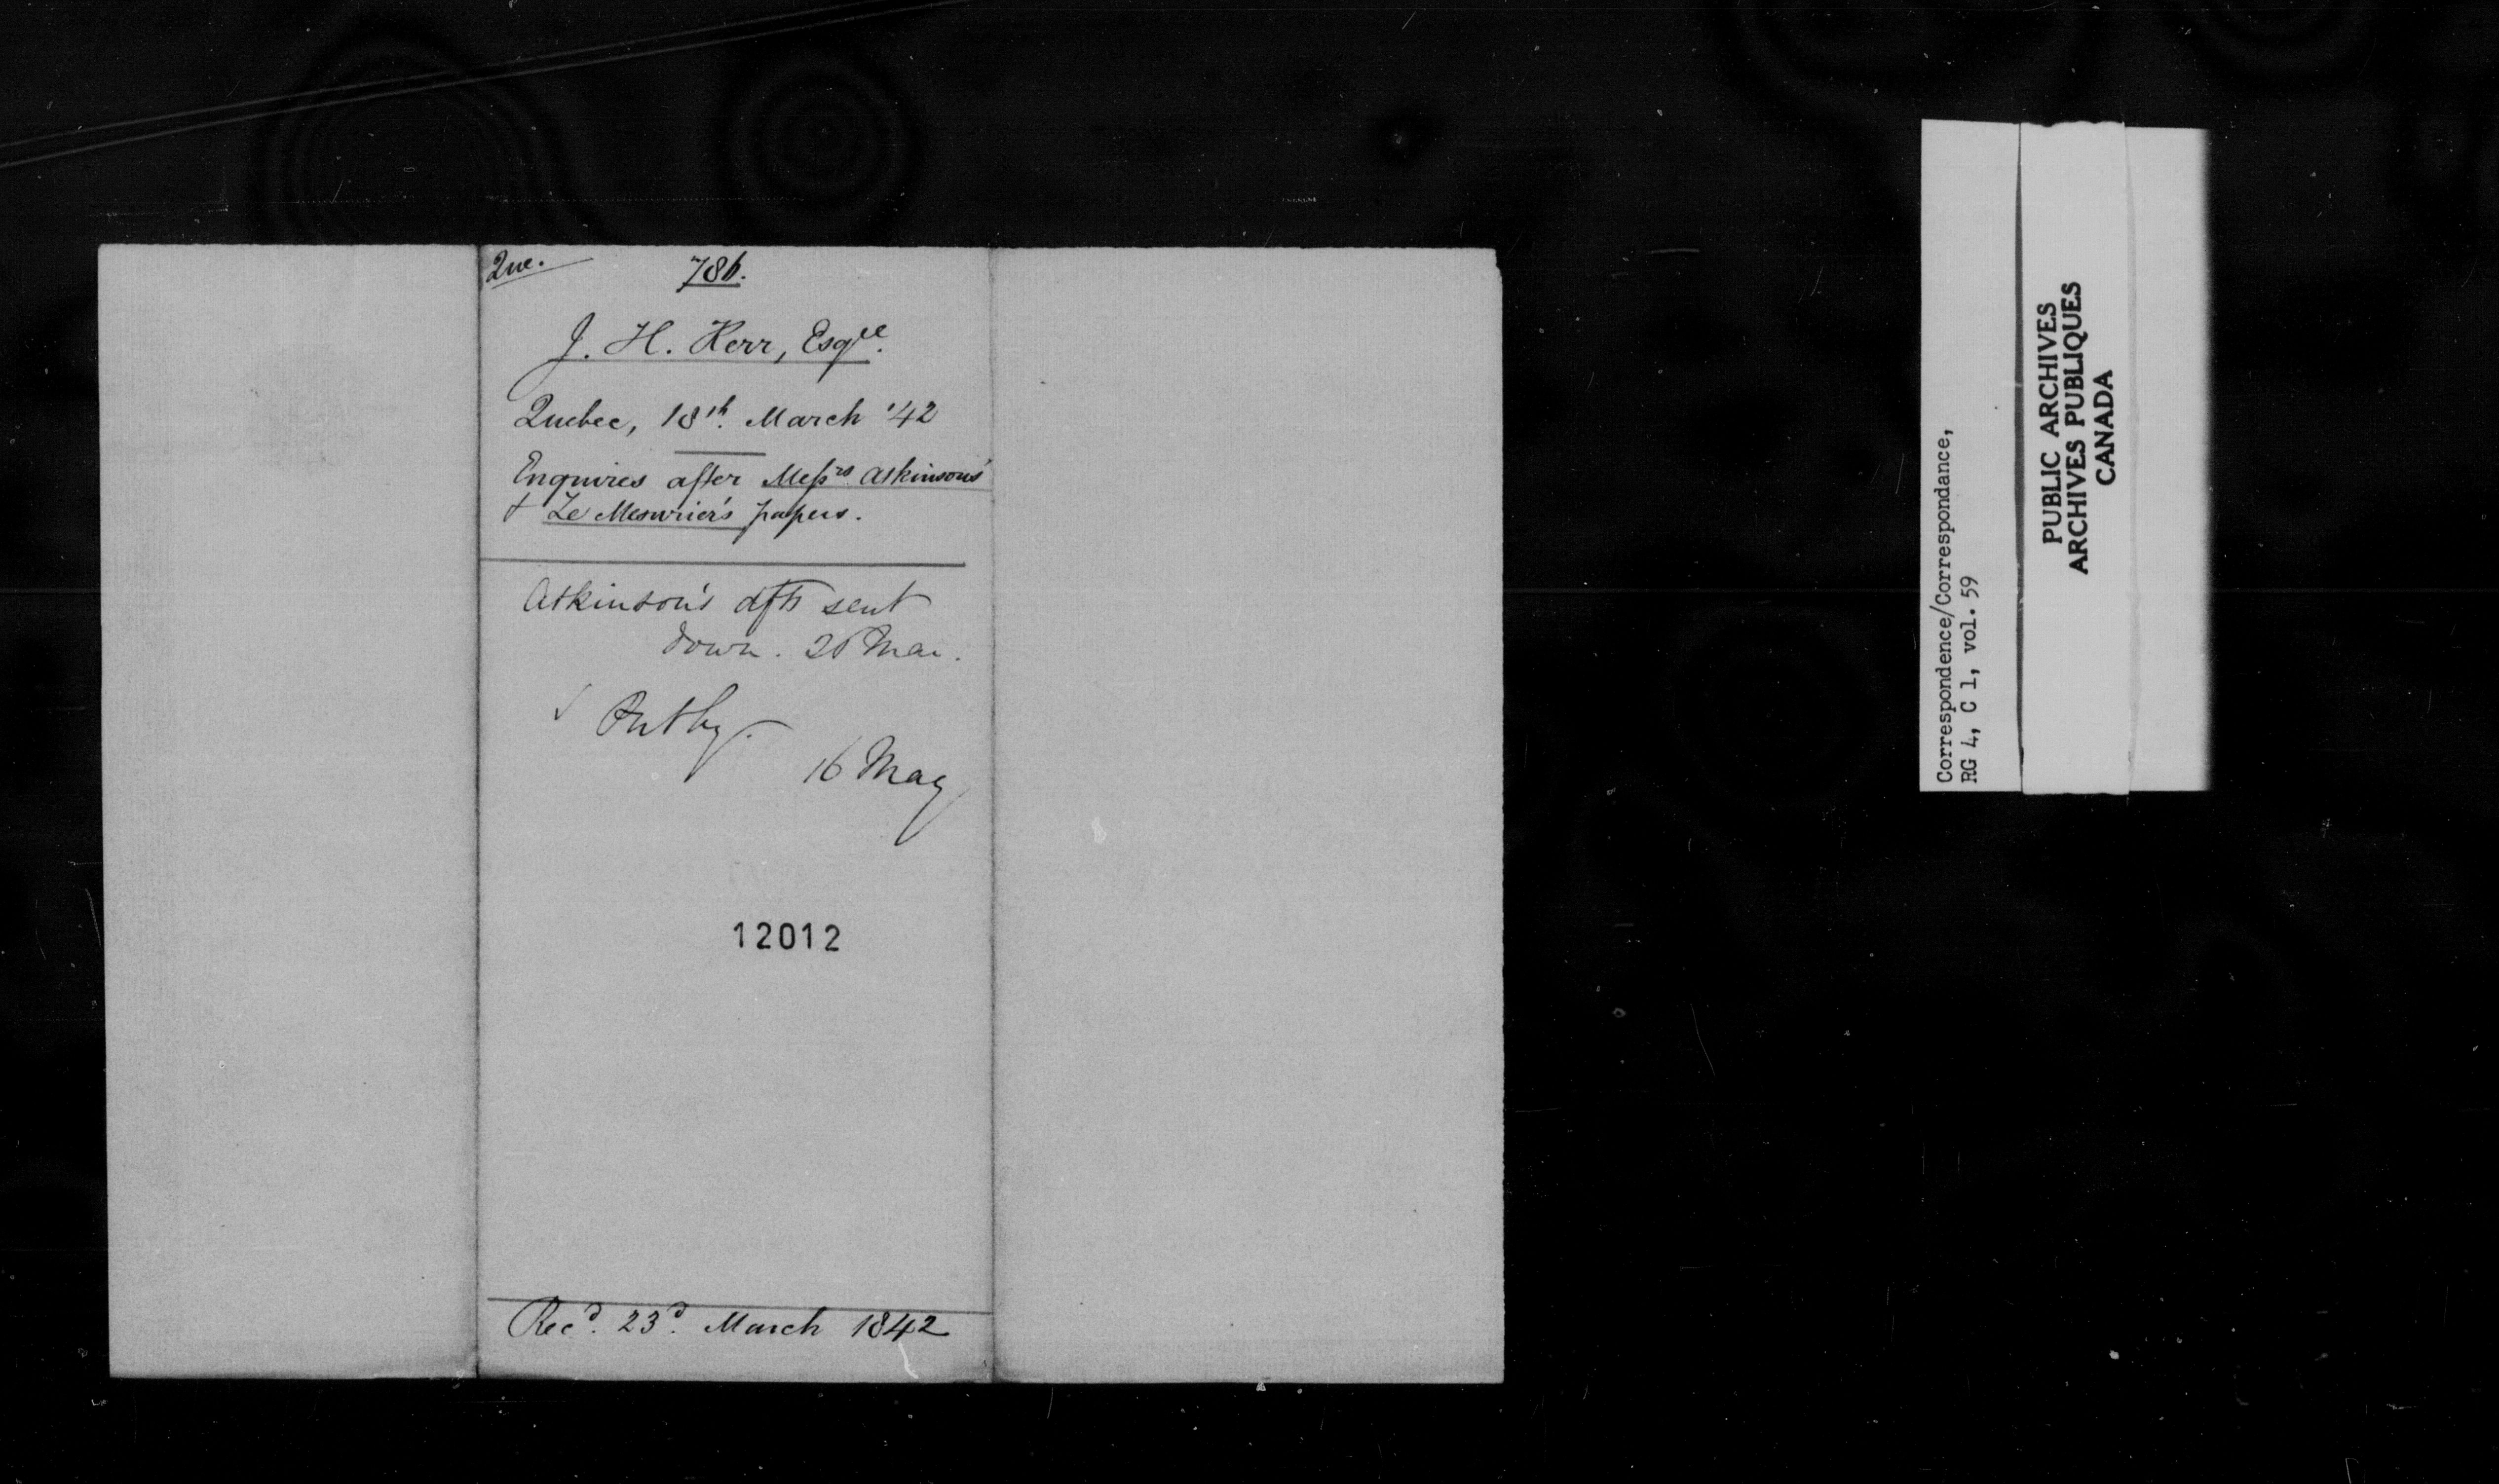 Que.
786.
J. H. Kerr, Esqre.
Quebec, 18th. March '42
Enquires after Messrs Atkinson's
& Le Mesurier's papers.
Atkinson's dfts sent
down. 26 Mar.
16 May
12012
Recd. 23d. March 1842
Correspondence/Correspondance,
RG 4, C 1, vol. 59
PUBLIC ARCHIVES
ARCHIVES PUBLIQUES
CANADA